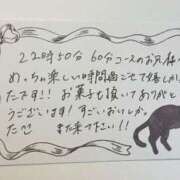 22時50分 60分コースのお兄様
めっちゃ楽しい時間過ごせて嬉しかっ
たです!! お菓子も頂いてありがと
うございます! すごいおいしか
た
また来てねー!!